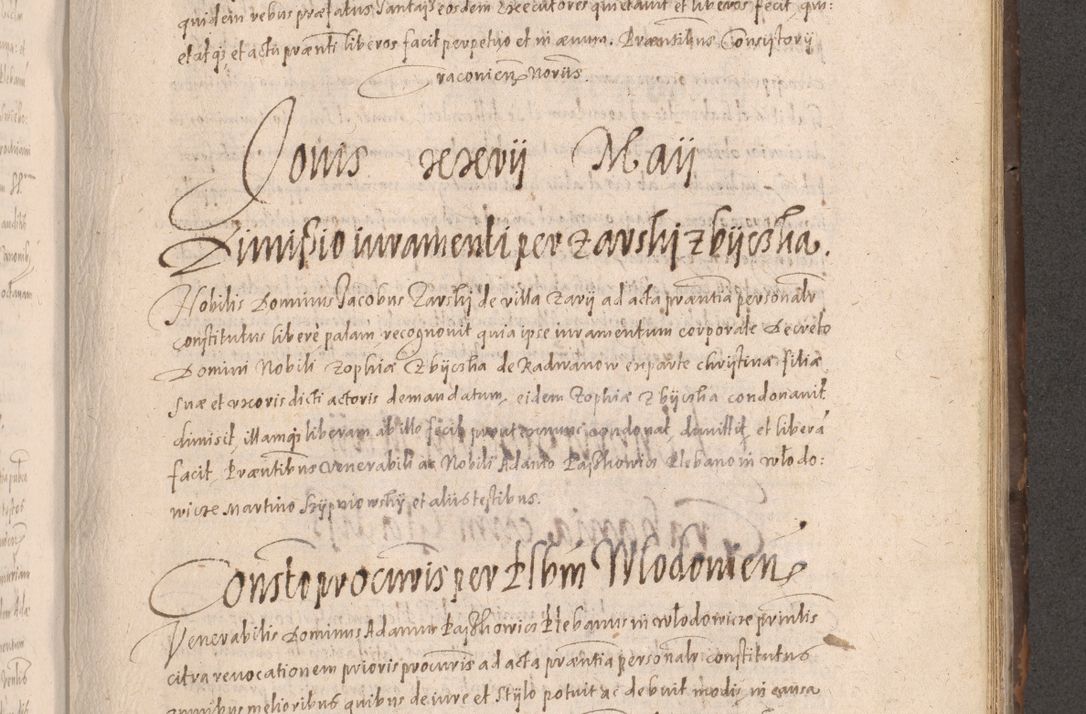 quidem rebus præfatus Zantays eosdem Executores quietavit et liberos fecit, qui:
etatq; et actu prænti liberos facit perpetuo et in ævum. Præntibus Consistorij
Cracovien Notariis.
Jovis xxxvij Maij
Dimissio iuramenti per Zarskij Zbijeska.
Nobilis Dominus Jacobus Zarskij de villa Zarij ad acta præntia personalr
Constitutus liberè palam recognovit quia ipse iuramentum corporale Decreto
Domini Nobili Zophiæ Zbijeska de Radwanow ex parte christinæ filiæ
suæ et uxoris dicti actoris demandatum, eidem Zophiæ Zbijeska condonavit
dimisit, illamq; liberam ab illo fecit prout et nunc condonat, dimittit, et liberā
facit. Præntibus Venerabili ac Nobili Adamo Paskhowicz Plebano in włodo:
wicze Martino Szypniowskij et aliis testibus.
Constō procuris per Plbm Wlodowien
Venerabilis Dominus Adamus Paskhowicz Plebanus in włodowicze princlis
citra revocationem prioris procuris ad acta præntia personalr constitutus
omnibus melioribus quibus de iure et stijlo potuit ac debuit modis in causa